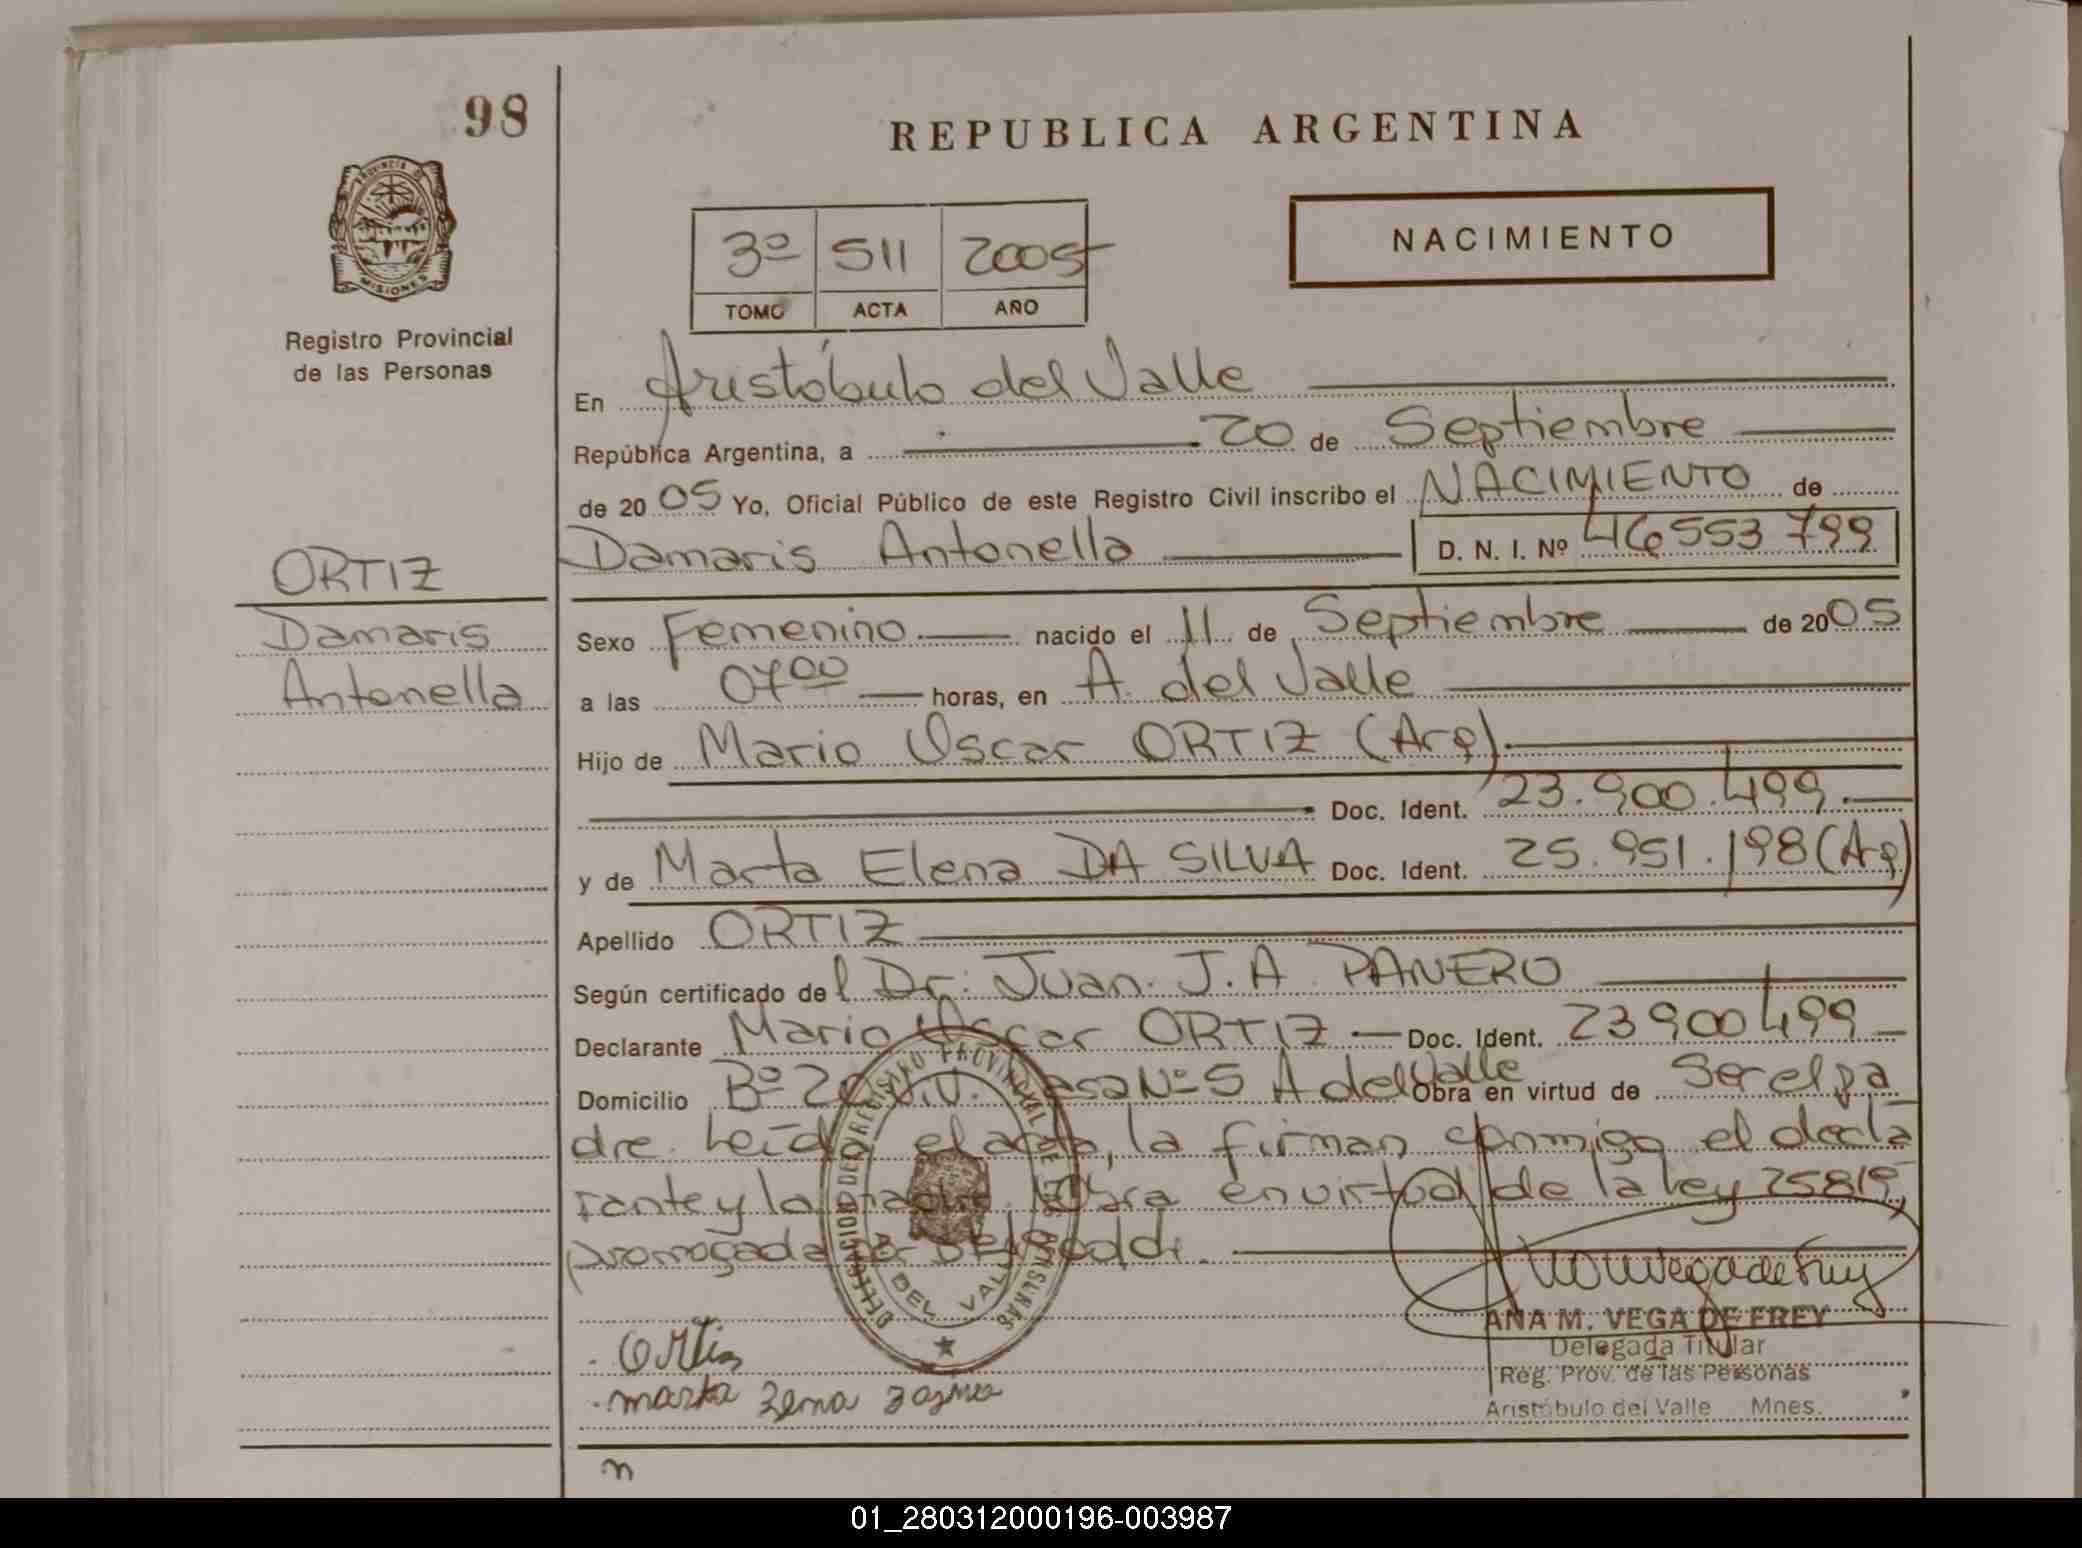 98
REPUBLICA ARGENTINA
PROVINCIA DE
MISIONES
Registro Provincial
de las Personas
3º 511 2005
TOMO ACTA AÑO
NACIMIENTO
En Aristóbulo del Valle
República Argentina, a 20 de Septiembre
de 20 05 Yo, Oficial Público de este Registro Civil inscribo el NACIMIENTO de
Damaris Antonella D. N. I. Nº 46553799
ORTIZ
Damaris
Antonella
Sexo Femenino nacido el 11 de Septiembre de 20 05
a las 07 00 horas, en A. del Valle
Hijo de Mario Oscar ORTIZ (Arg)
Doc. Ident. 23.900.499
y de Marta Elena DA SILVA Doc. Ident. 25.951.198 (Arg)
Apellido ORTIZ
Según certificado del Dr. Juan. J. A PANERO
Declarante Mario Oscar ORTIZ Doc. Ident. 23900499
Domicilio Bº 20 Viv. Casa Nº 5 A del Valle Obra en virtud de Ser el pa
dre. Leída el acta, la firman conmigo el decla
rante y la madre. Obra en virtud de la ley 25819,
DELEGACION DEL REGISTRO PROVINCIAL DE LAS PERSONAS
DEL VALLE
Ortiz
Marta
ANA M. VEGA DE FREY
Delegada Titular
Reg. Prov. de las Personas
Aristóbulo del Valle Mnes.
n
01_280312000196-003987